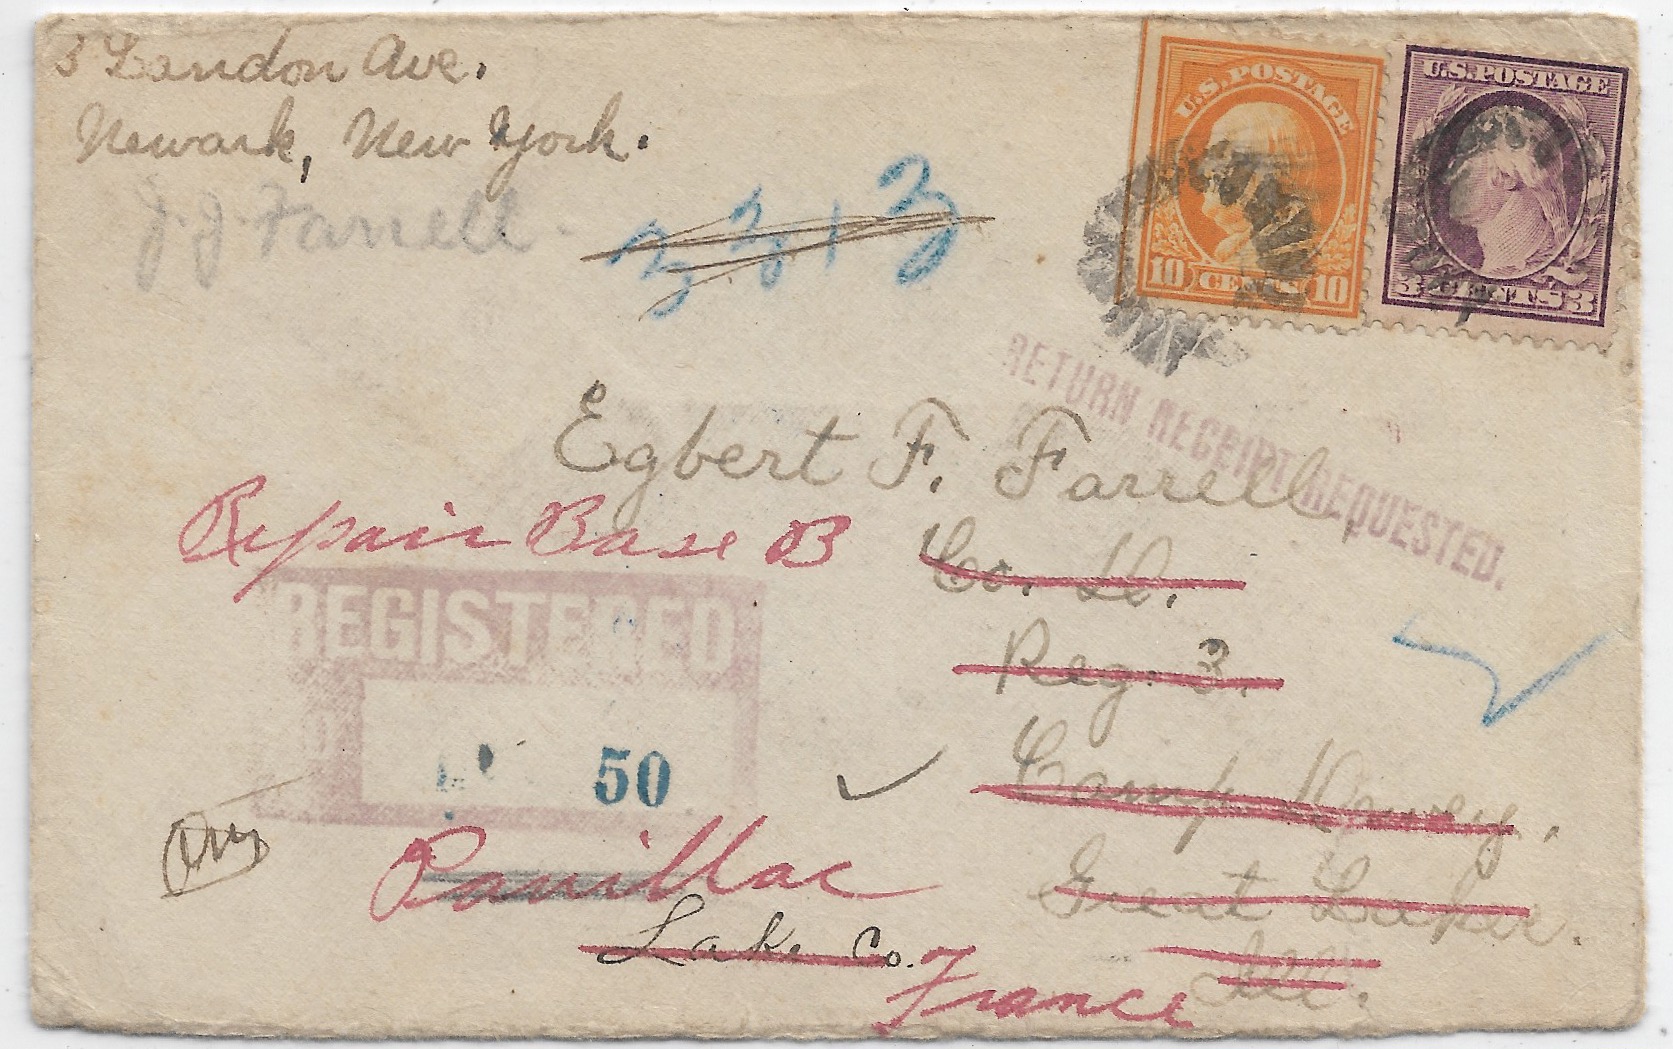 3 Landon Ave.
Newark, New York.
J. J. Farrell.
3313
U.S. POSTAGE
10 CENTS 10
U.S. POSTAGE
3 CENTS 3
RETURN RECEIPT REQUESTED.
Egbert F. Farrell,
Repair Base B
Co. H.
REGISTERED
Reg. 3.
50
Camp Dewey,
Pauillac
Great Lakes.
Lake Co.
Ill.
France